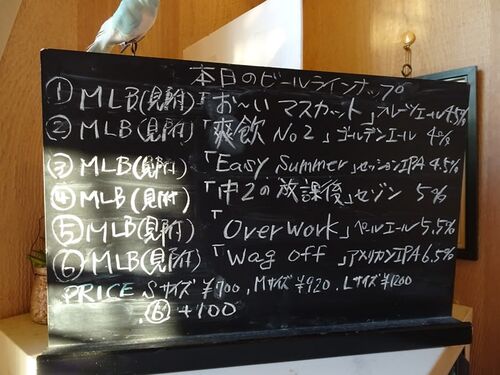 本日のビールラインナップ
① MLB(見附)「お〜いマスカット」フルーツエール4.5%
② MLB(見附)「爽飲 No2」ゴールデンエール 4%
③ MLB(見附)「Easy Summer」セッションIPA 4.5%
④ MLB(見附)「中2の放課後」セゾン 5%
⑤ MLB(見附)「Over Work」ペールエール5.5%
⑥ MLB(見附)「Wag off」アメリカンIPA6.5%
PRICE Sサイズ ¥700, Mサイズ ¥920, Lサイズ ¥1200
⑥ +100